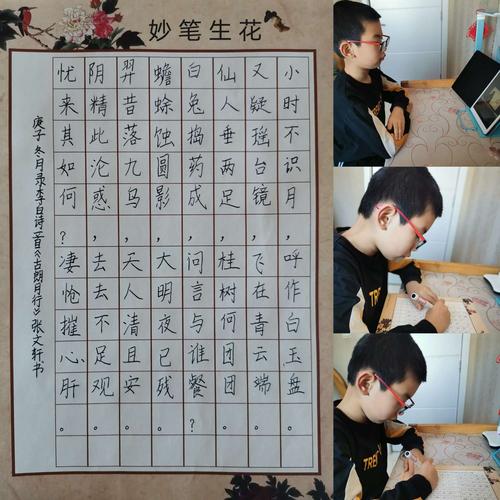 妙笔生花
小时不识月，呼作白玉盘。
又疑瑶台镜，飞在青云端。
仙人垂两足，桂树何团团。
白兔捣药成，问言与谁餐？
蟾蜍蚀圆影，大明夜已残。
羿昔落九乌，天人清且安。
阴精此沦惑，去去不足观。
忧来其如何？凄怆摧心肝。
庚子冬月录李白诗一首《古朗月行》张文轩书